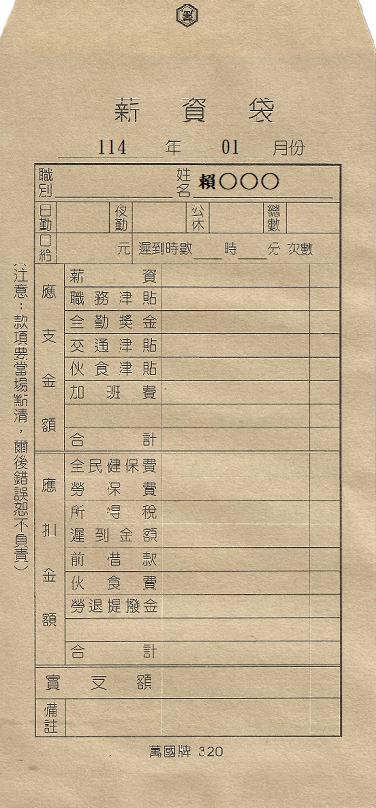 薪資袋
114 年 01 月份
職別 姓名 賴〇〇〇
日勤 夜勤 公休 總數
日給 元 遲到時數 時 分 次數
應支金額
薪資
職務津貼
全勤獎金
交通津貼
伙食津貼
加班費
合計
應扣金額
全民健保費
勞保費
所得稅
遲到金額
前借款
伙食費
勞退提撥金
合計
實支額
備註
(注意：款項要當場點清，爾後錯誤恕不負責)
萬國牌 320